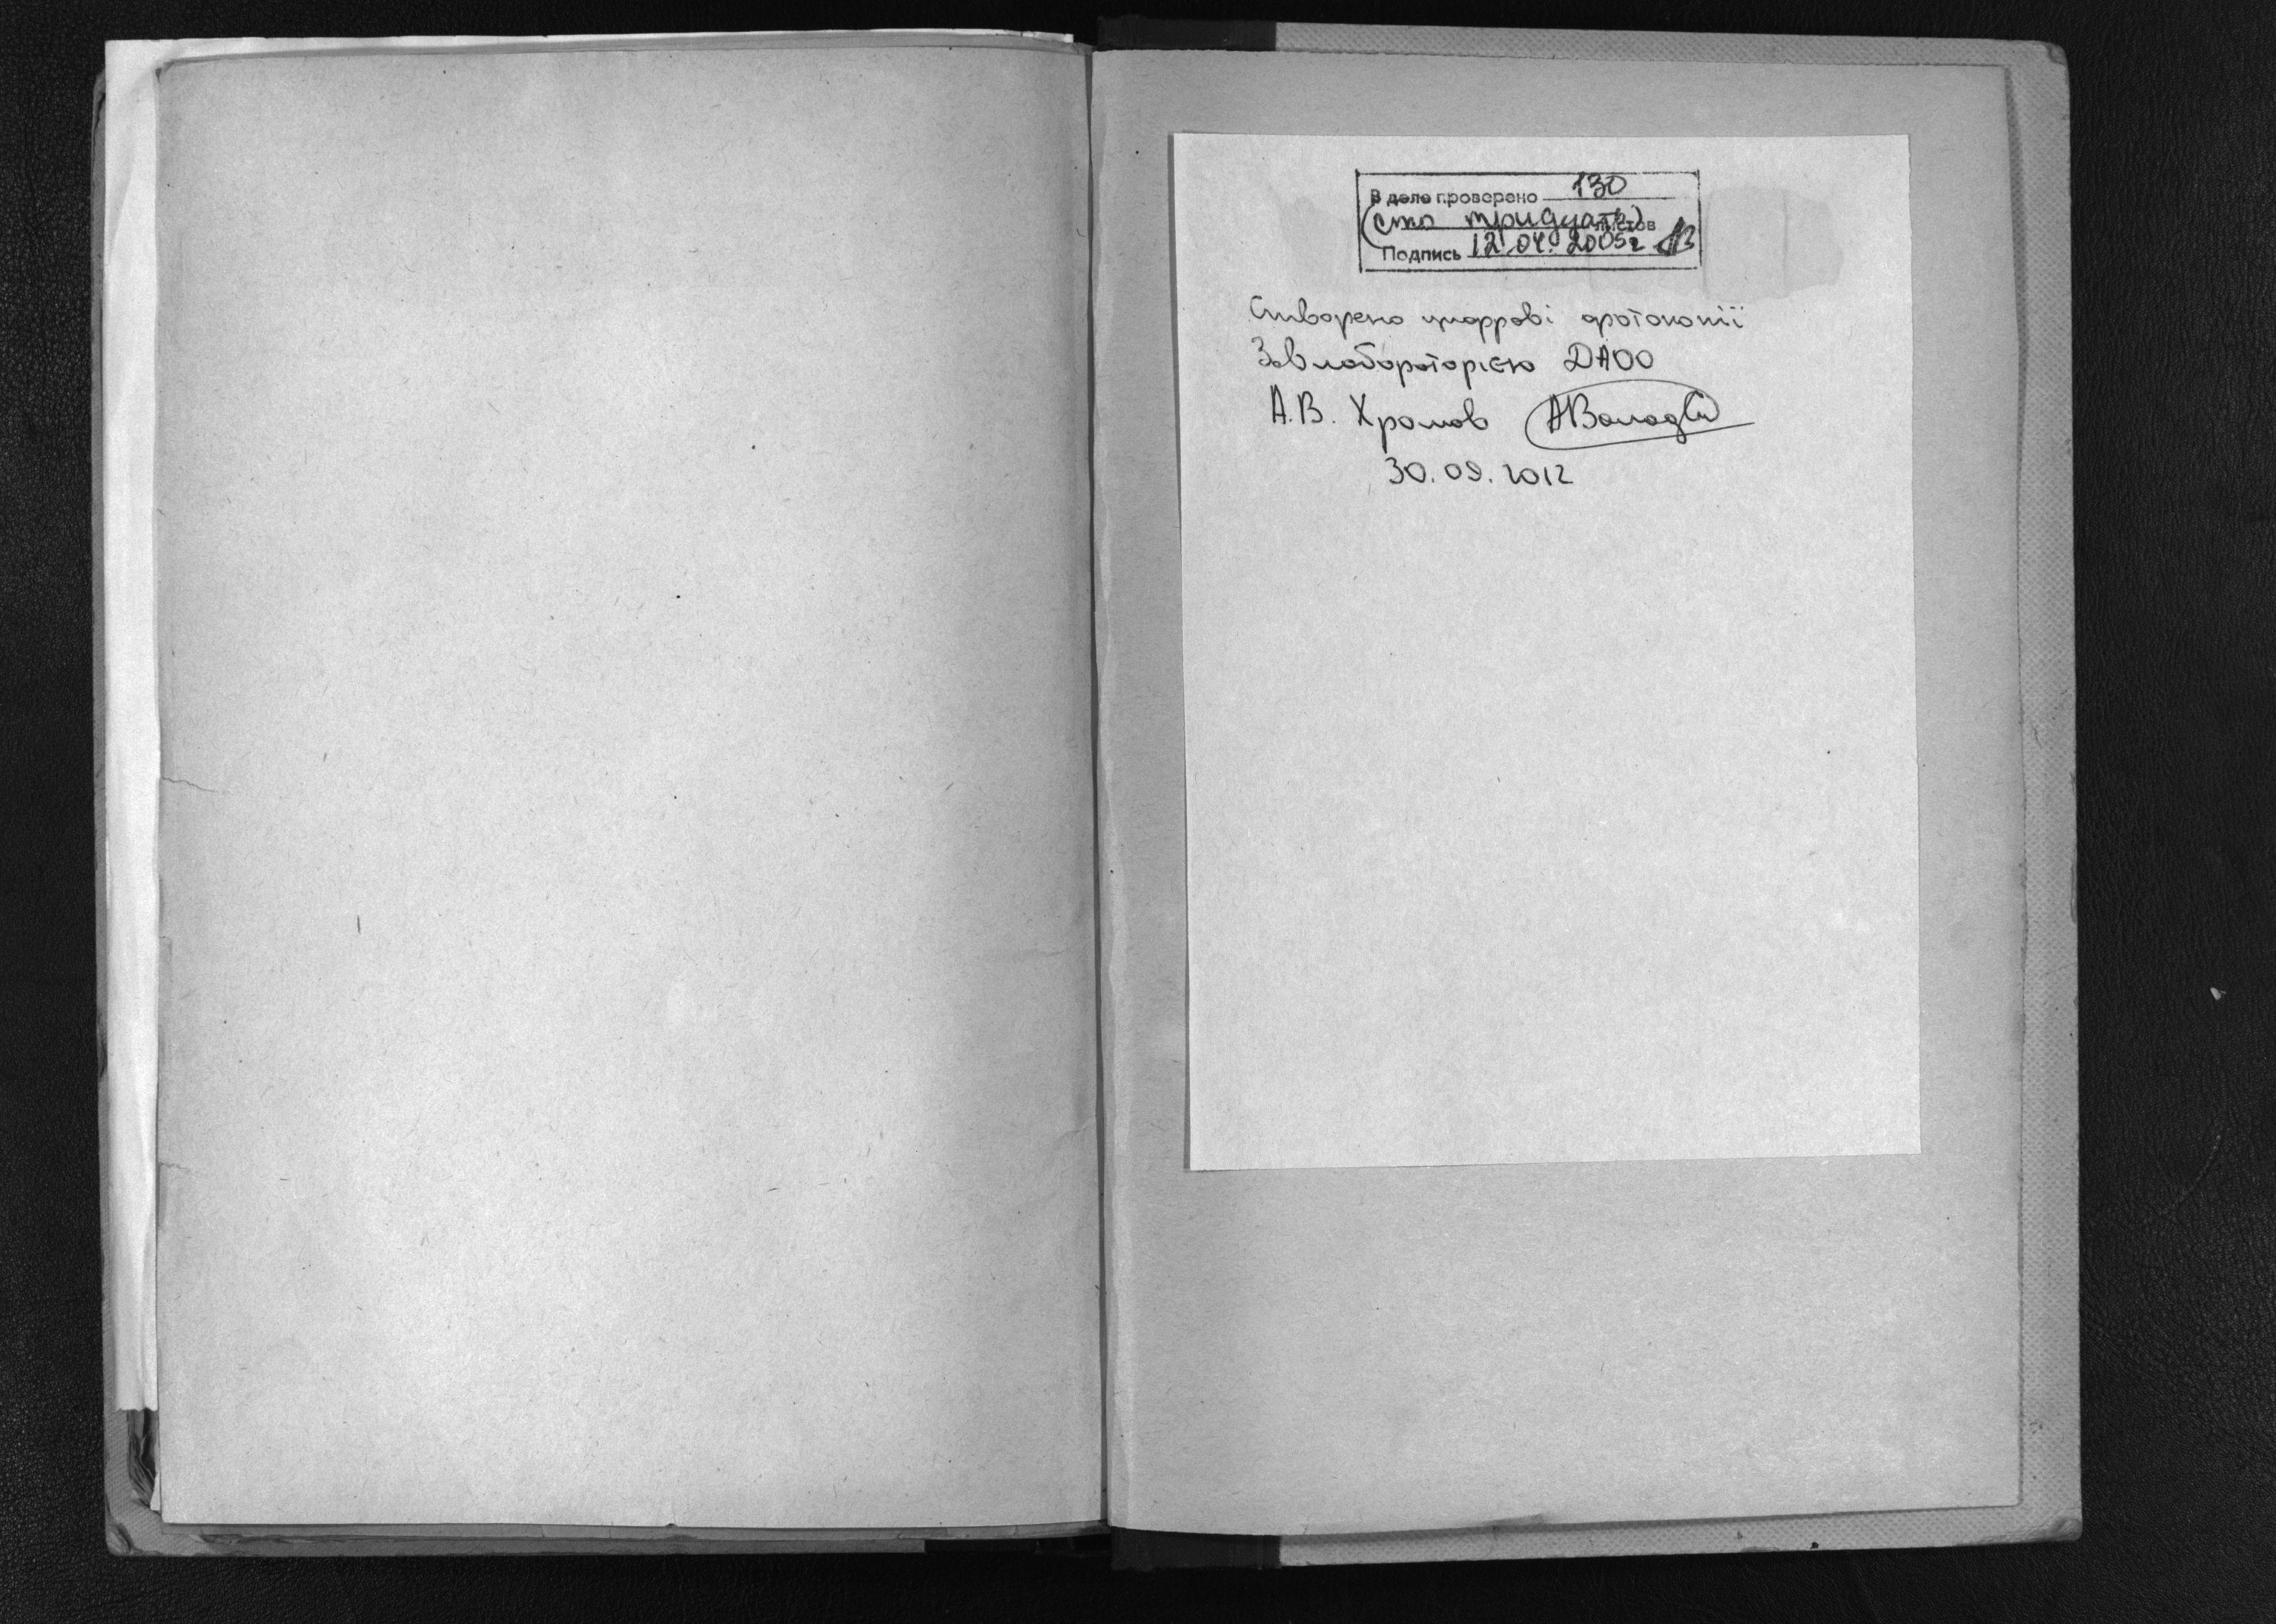 В деле проверено 130
(сто тридцать) листов
Подпись 12.04.2005г
Створено цифрові фотокопії
Зав лабораторією ДАОО
А.В. Хромов
30.09.2012